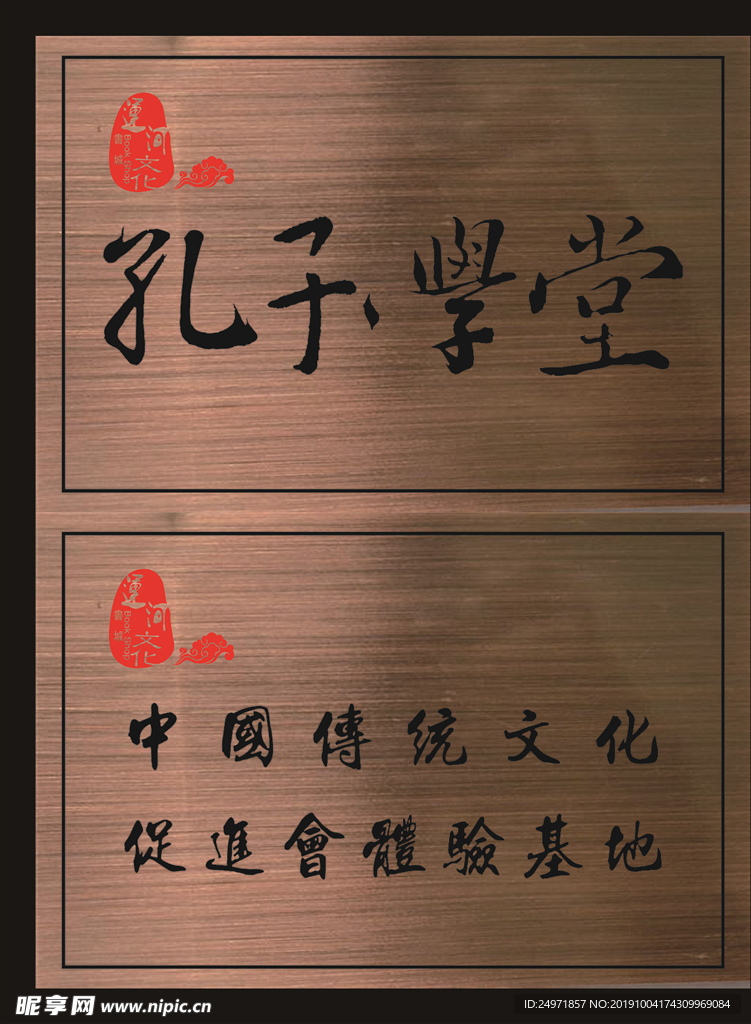 運河文化
書城
Book Shop
孔子學堂
運河文化
書城
Book Shop
中國傳统文化
促進會體驗基地
昵享网 www.nipic.cn
ID:24971857 NO:20191004174309969084